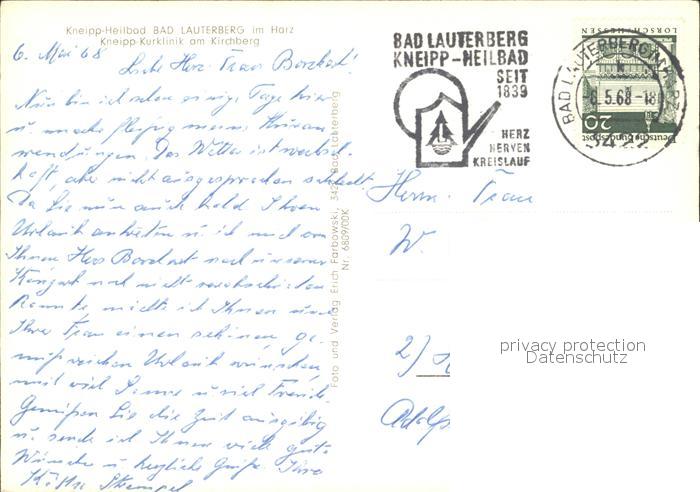 Kneipp-Heilbad BAD LAUTERBERG im Harz
Kneipp-Kurklinik am Kirchberg
6. Mai 68
Liebe Herr Frau Borchart!
Nun bin ich schon einige Tage hier
u. mache fleißig meine Kneipp an
wendungen. Das Wetter ist wechsel
haft, aber nicht ausgesprochen schlecht.
Da Sie nun auch bald Ihren
Urlaub antreten u. ich mich von
Ihnen Herr Borchart nach unserer
nicht verabschieden
konnte, möchte ich Ihnen und
Ihrer Frau einen schönen, ge-
nußreichen Urlaub wünschen
mit viel Sonne u. viel Freude.
Genießen Sie die Zeit ausgiebig
u. sende ich Ihnen viele gute
Wünsche u. herzliche Grüße Ihre
Käthe Stempel
Foto und Verlag Erich Farbowski, 3422 Bad Lauterberg
Nr. 6809/00K
BAD LAUTERBERG
KNEIPP-HEILBAD
SEIT
1839
HERZ
NERVEN
KREISLAUF
BAD LAUTERBERG IM HARZ
6.5.68-18
3422
LORSCH/HESSEN
20
Deutsche Bundespost
Herrn. Frau
W.
2)
Adolf
privacy protection
Datenschutz